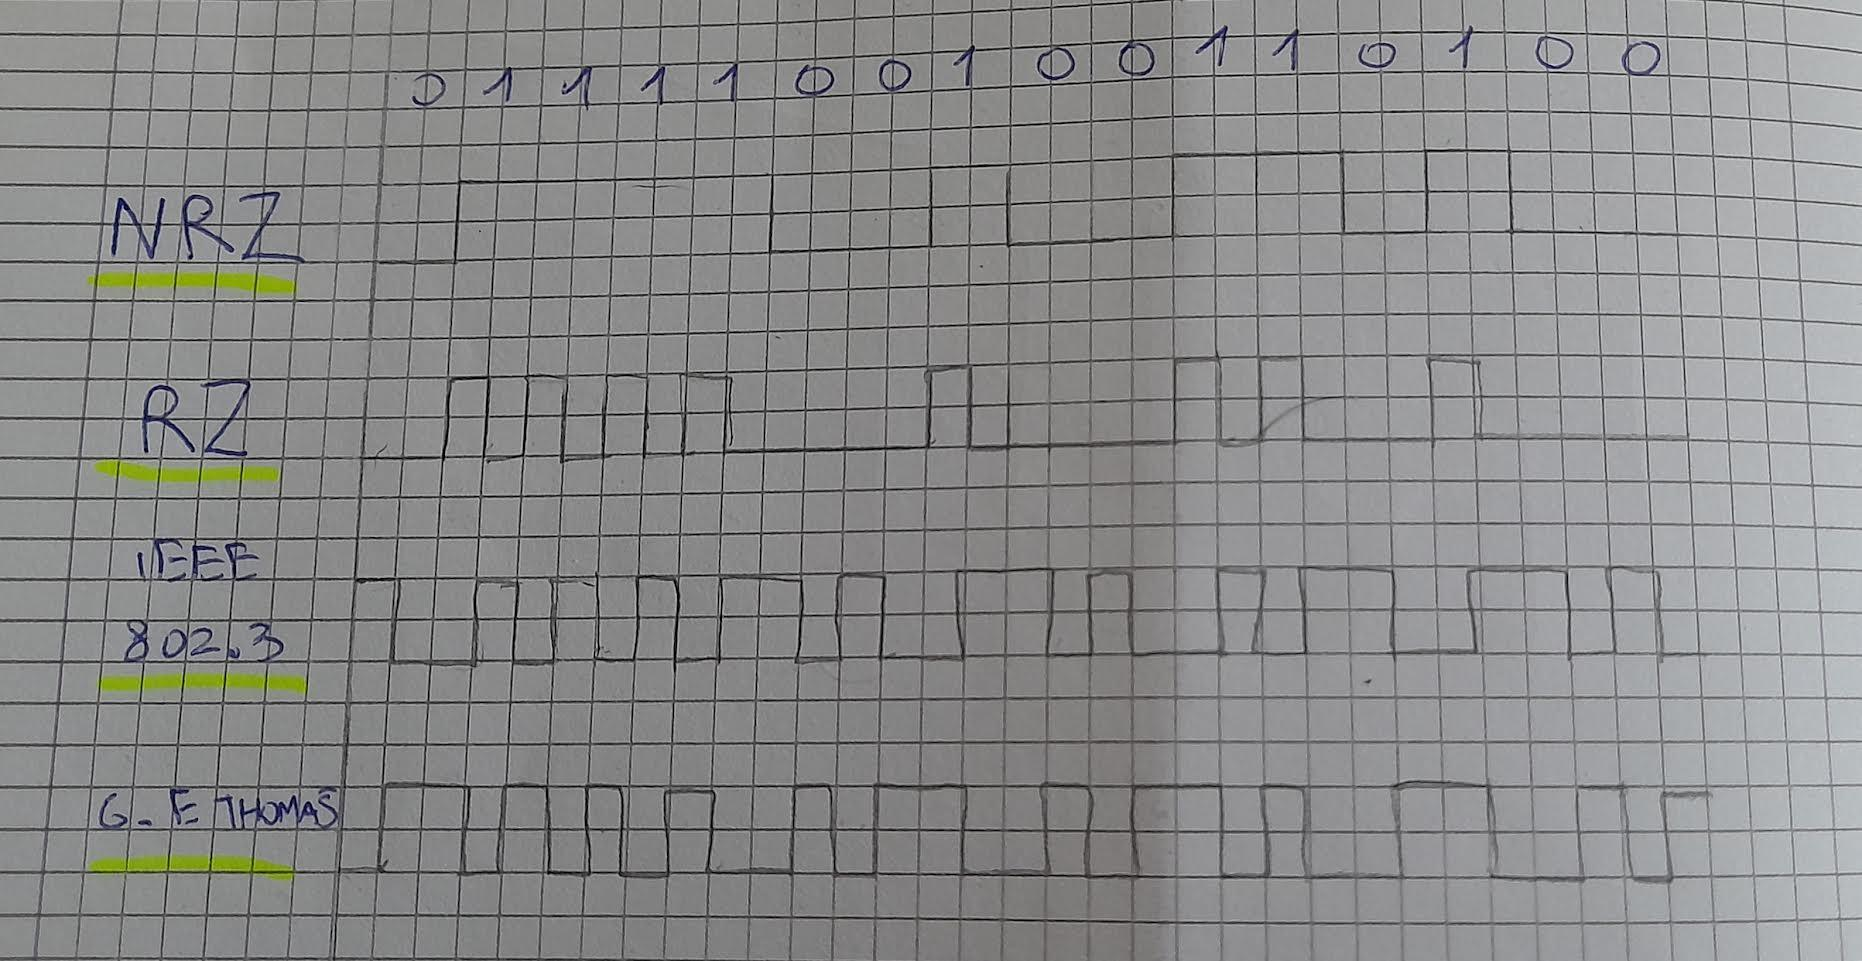 0 1 1 1 1 0 0 1 0 0 1 1 0 1 0 0
NRZ
RZ
IEEE
802.3
G-E THOMAS